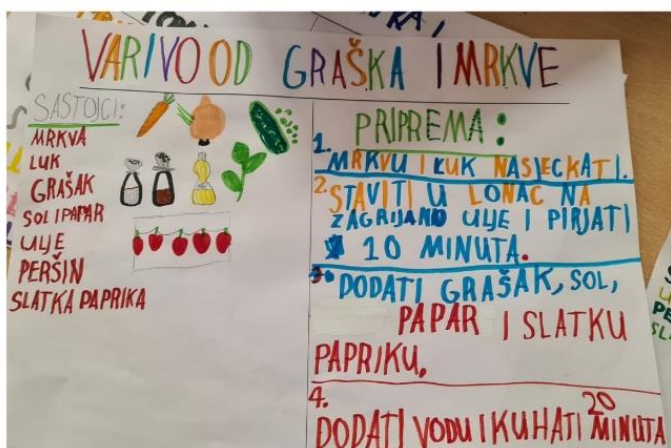 VARIVO OD GRAŠKA I MRKVE
SASTOJCI:
MRKVA
LUK
GRAŠAK
SOL I PAPAR
ULJE
PERŠIN
SLATKA PAPRIKA
PRIPREMA:
1.
MRKVU I LUK NASJECKATI.
2.
STAVITI U LONAC NA
ZAGRIJANO ULJE I PIRJATI
10 MINUTA.
3.
DODATI GRAŠAK, SOL,
PAPAR I SLATKU
PAPRIKU.
4.
DODATI VODU I KUHATI 20 MINUTA